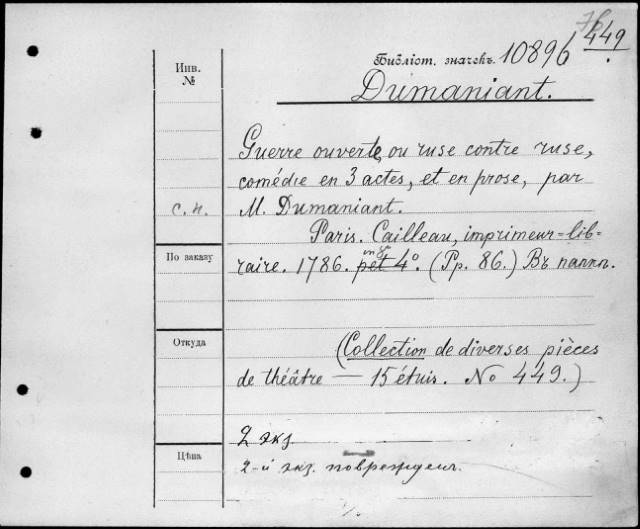 449
Библіот. значекъ. 10896
Инв.
№
Dumaniant.
Guerre ouverte, ou ruse contre ruse,
comédie en 3 actes, et en prose, par
с. н. M. Dumaniant.
Paris. Cailleau, imprimeur=lib-
По заказу
raire. 1786. pet 4°. (Pp. 86.) Въ папкѣ.
Откуда
(Collection de diverses pièces
de théâtre — 15 étuis. No 449.)
2 экз.
Цѣна
2-й экз. поврежден.